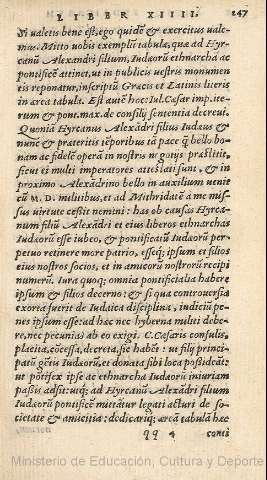 LIBER XIIII. 247
Si ualetis bene est, ego quidē & exercitus uale-
mus. Mitto uobis exemplū tabulæ, quæ ad Hyr-
canū Alexandri filium, Iudæorū ethnarchā ac
pontificē attinet, ut in publicis uestris monumen
tis reponatur, inscriptū Græcis et Latinis literis
in ærea tabula. Est autē hoc: Iul. Cæsar imp. ite-
rum & pont. max. de consilij sententia decreui.
Quoniā Hyrcanus Alexādri filius Iudæus &
nunc & præteritis tēporibus tā pace q̄ bello bo-
nam ac fidelē operā in nostris negotijs præstitit,
sicut ei multi imperatores attestati sunt, & in
proximo Alexādrino bello in auxilium uenit
cū M. D. militibus, et ad Mithridatē à me mis-
sus uirtute cessit nemini: has ob causas Hyrca-
num filiū Alexādri et eius liberos ethnarchas
Iudæorū esse iubeo, & pontificatū Iudæorū per-
petuo retinere more patrio, esseq; ipsum et filios
eius nostros socios, et in amicorū nostrorū recipi
numerū. Iura quoq; omnia pontificialia habere
ipsum & filios decerno: & si qua controuersia
exorta fuerit de Iudaica disciplina, iudiciū pe-
nes ipsum esse: ad hæc nec hyberna militū debe-
re, nec pecunias ab eo exigi. C. Cæsaris consulis,
placita, cōcessa, decreta, sic habēt: ut filij princi-
patū gētis Iudæorū, et donata sibi loca possideāt:
ut pōtifex ipse ac ethnarcha Iudæorū iniuriam
passis adsit: utq; ad Hyrcanū Alexādri filium
Iudæorū pontificē mittātur legati acturi de so-
cietate & amicitia: dedicariq; æreā tabulā hæc
qq 4 conti
Ministerio de Educación, Cultura y Deporte